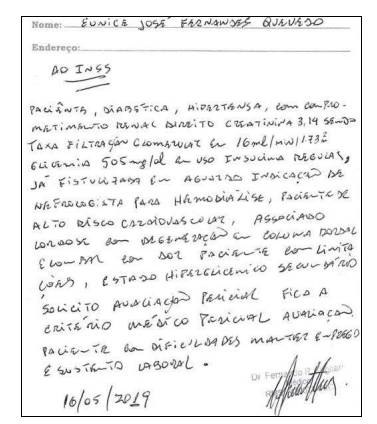 Nome: EUNICE JOSÉ FERNANDES QUEVEDO
Endereço:
AO INSS
PACIENTE, DIABÉTICA, HIPERTENSA, com COMPRO-
METIMENTO RENAL DIREITO CREATININA 3,14 SENDO
TAXA FILTRAÇÃO GLOMERULAR EM 16ml/min/1.73²
GLICEMIA 505mg/dl em uso INSULINA REGULAR,
JÁ FISTULIZADA EM AGUARDO INDICAÇÃO DE
NEFROLOGISTA PARA HEMODIÁLISE, PACIENTE DE
ALTO RISCO CARDIOVASCULAR, ASSOCIADO
LORDOSE com DEGENERAÇÃO EM COLUNA DORSAL
E LOMBAR com DOR PACIENTE com LIMITA
ÇÕES, ESTADO HIPERGLICÊMICO SECUNDÁRIO
SOLICITO AVALIAÇÃO PERICIAL FICA A
CRITÉRIO MÉDICO PERICIAL AVALIAÇÃO.
PACIENTE com DIFICULDADES MANTER EMPREGO
E SUSTENTO LABORAL.
16/05/2019
Dr